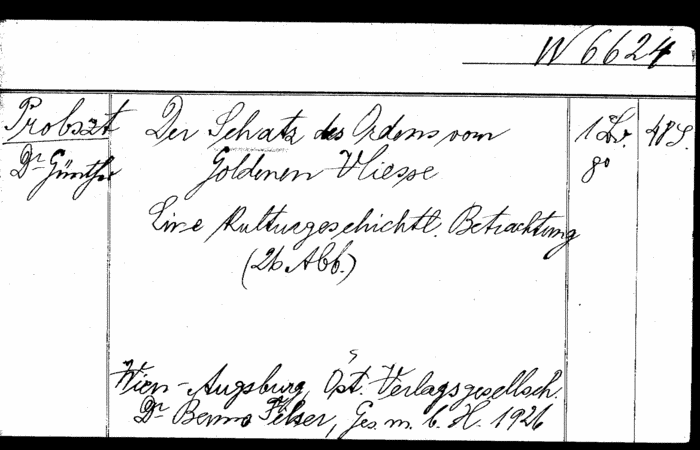 W 6624
Probszt Der Schatz des Ordens vom 1 Br. 48 S.
Dr Günther Goldenen Vliesse 8°
Eine Kulturgeschichtl. Betrachtung
(26 Abb.)
Wien-Augsburg, Öst. Verlagsgesellsch.
Dr Benno Filser, Ges. m. b. H. 1926